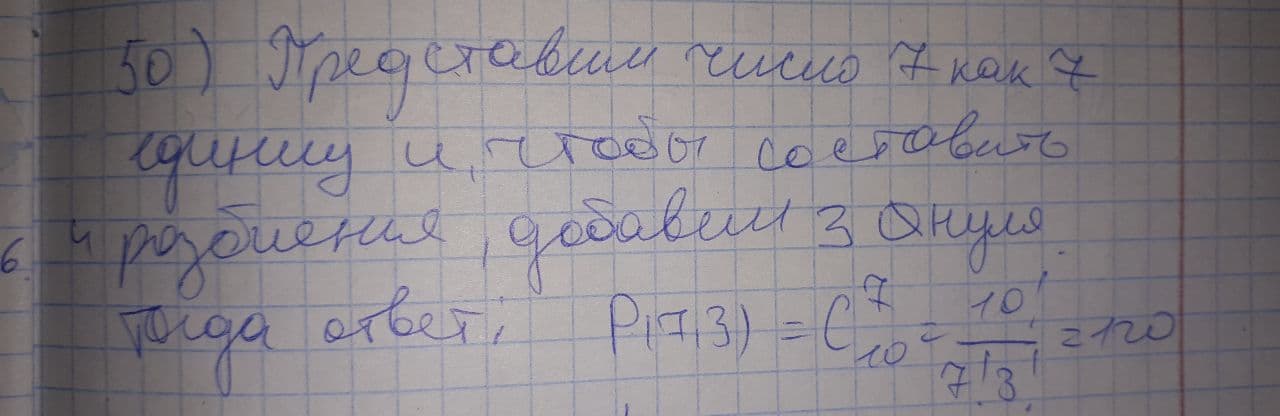 50) Представим число 7 как 7
единиц и, чтобы составить
4 разбиения, добавим 3 нуля.
Тогда ответ: P(7,3) = C_{10}^{7} = \frac{10!}{7!3!} = 120
6.